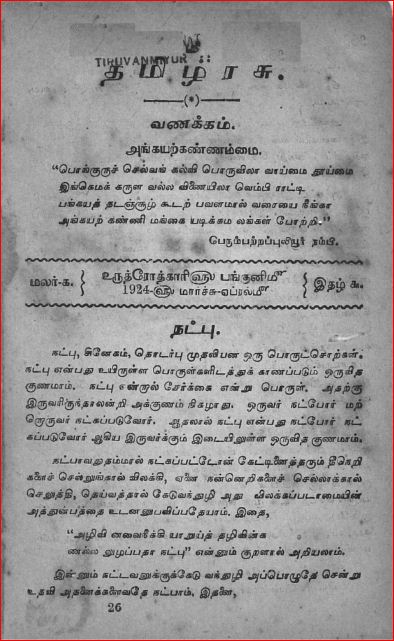 TIRUVANMIYUR
தமிழரசு.
வணக்கம்.
அங்கயற்கண்ணம்மை.
“பொங்குருச் செல்வங் கல்வி பொருவிலா வாய்மை தூய்மை
இங்கெமக் கருள வல்ல வினையிலா வெம்பி ராட்டி
பங்கயத் தடஞ்சூழ் கூடற் பவளமால் வரையை நீங்கா
அங்கயற் கண்ணி மங்கை யடிக்கம லங்கள் போற்றி.”
பெரும்பற்றப்புலியூர் நம்பி.
மலர்-க. உருத்ரோத்காரி௵ பங்குனி௴ இதழ் க.
1924-௵ மார்ச்சு-ஏப்ரல்௴
நட்பு.
நட்பு, சினேகம், தொடர்பு முதலியன ஒரு பொருட்சொற்கள்.
நட்பு என்பது உயிருள்ள பொருள்களிடத்துக் காணப்படும் ஒருவித
குணமாம். நட்பு என்றால் சேர்க்கை என்று பொருள். அதற்கு
இருவரிருந்தாலன்றி அக்குணம் நிகழாது. ஒருவர் நட்போர் மற்
றொருவர் நட்கப்படுவோர். ஆதலால் நட்பு என்பது நட்போர் நட்
கப்படுவோர் ஆகிய இருவர்க்கும் இடையிலுள்ள ஒருவித குணமாம்.
நட்பாவதுதம்மால் நட்கப்பட்டோன் கேட்டினைத்தரும் தீநெறி
களைச் சென்றுங்கால் விலக்கி, ஏனை நன்னெறிகளைச் செல்லாக்கால்
செலுத்தி, தெய்வத்தால் கேடுவந்துழி அது விலக்கப்படாமையின்
அத்துன்பத்தை உடனனுபவிப்பதேயாம். இதை,
“அழிவி னவைநீக்கி யாறுய்த் தழிவின்க
ணல்ல லுழப்பதா நட்பு” என்னும் குறளால் அறியலாம்.
இன்னும் நட்டவனுக்குக்கேடு வந்துழி அப்பொழுதே சென்று
உதவி அதனைக்களைவதே நட்பாம். இதனை,
26